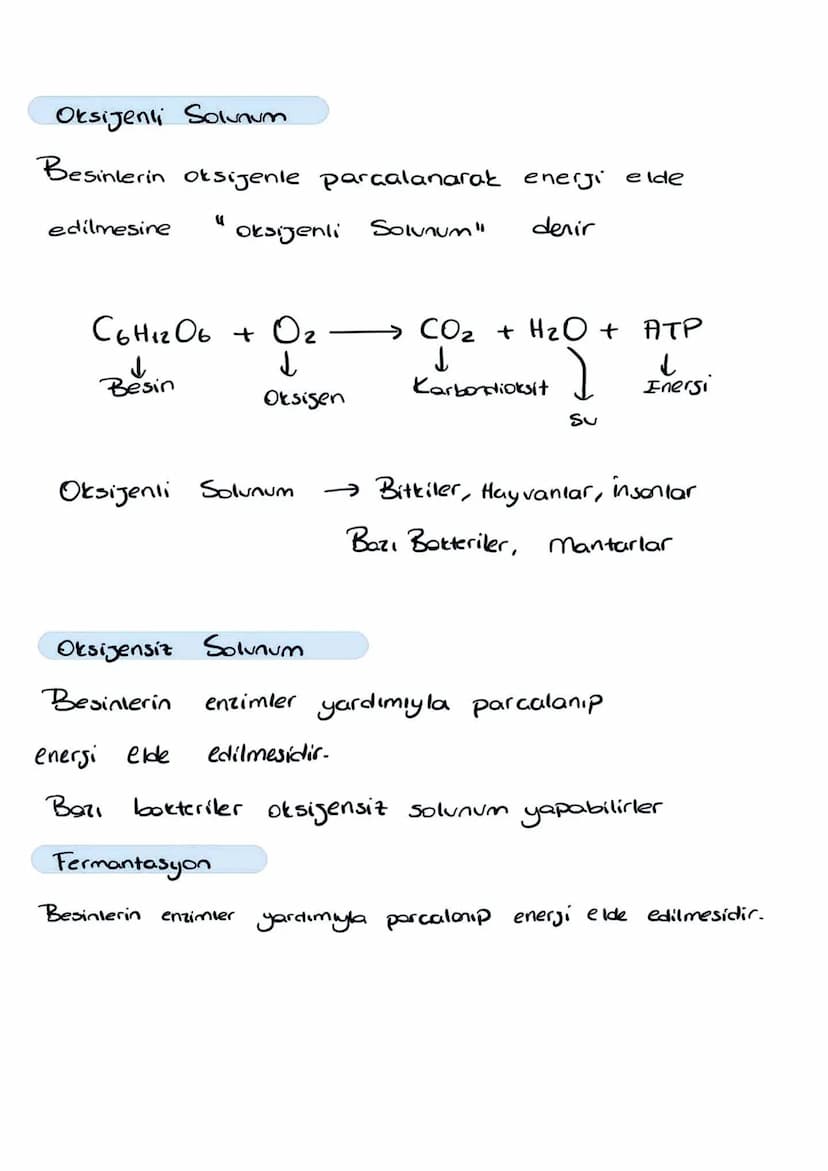 Oksijenli Solunum
Besinlerin oksijenle parcalanarak enerji elde
edilmesine "oksijenli Solunum" denir
C6H12O6 + O2 → CO2 + H2O + ATP
↓ ↓ ↓ ↓ ↓
Besin Oksijen Karbondioksit su Enerji
Oksijenli Solunum → Bitkiler, Hayvanlar, insanlar
Bazı Bakteriler, mantarlar
Oksijensiz Solunum
Besinlerin enzimler yardımıyla parcalanıp
enerji elde edilmesidir.
Bazı bakteriler oksijensiz solunum yapabilirler
Fermantasyon
Besinlerin enzimler yardımıyla parcalanıp enerji elde edilmesidir.